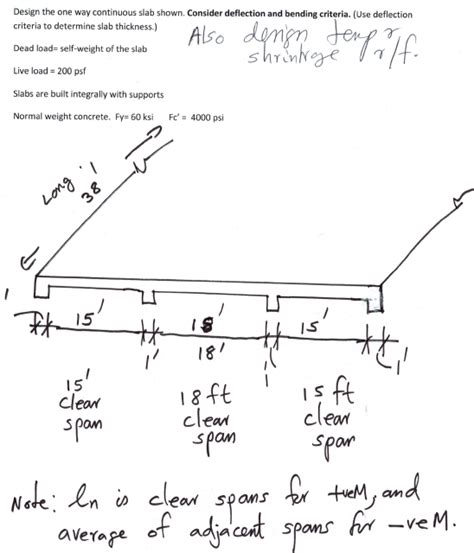 Design the one way continuous slab shown. Consider deflection and bending criteria. (Use deflection
criteria to determine slab thickness.)
Also design temp r
shrinkage r/f.
Dead load= self-weight of the slab
Live load = 200 psf
Slabs are built integrally with supports
Normal weight concrete. Fy= 60 ksi Fc' = 4000 psi
Long: 38'
15' 18' 15'
1' 18' 1' 1'
15'
clear
span
18 ft
clear
span
15 ft
clear
span
Note: ln is clear spans for +veM, and
average of adjacent spans for -veM.